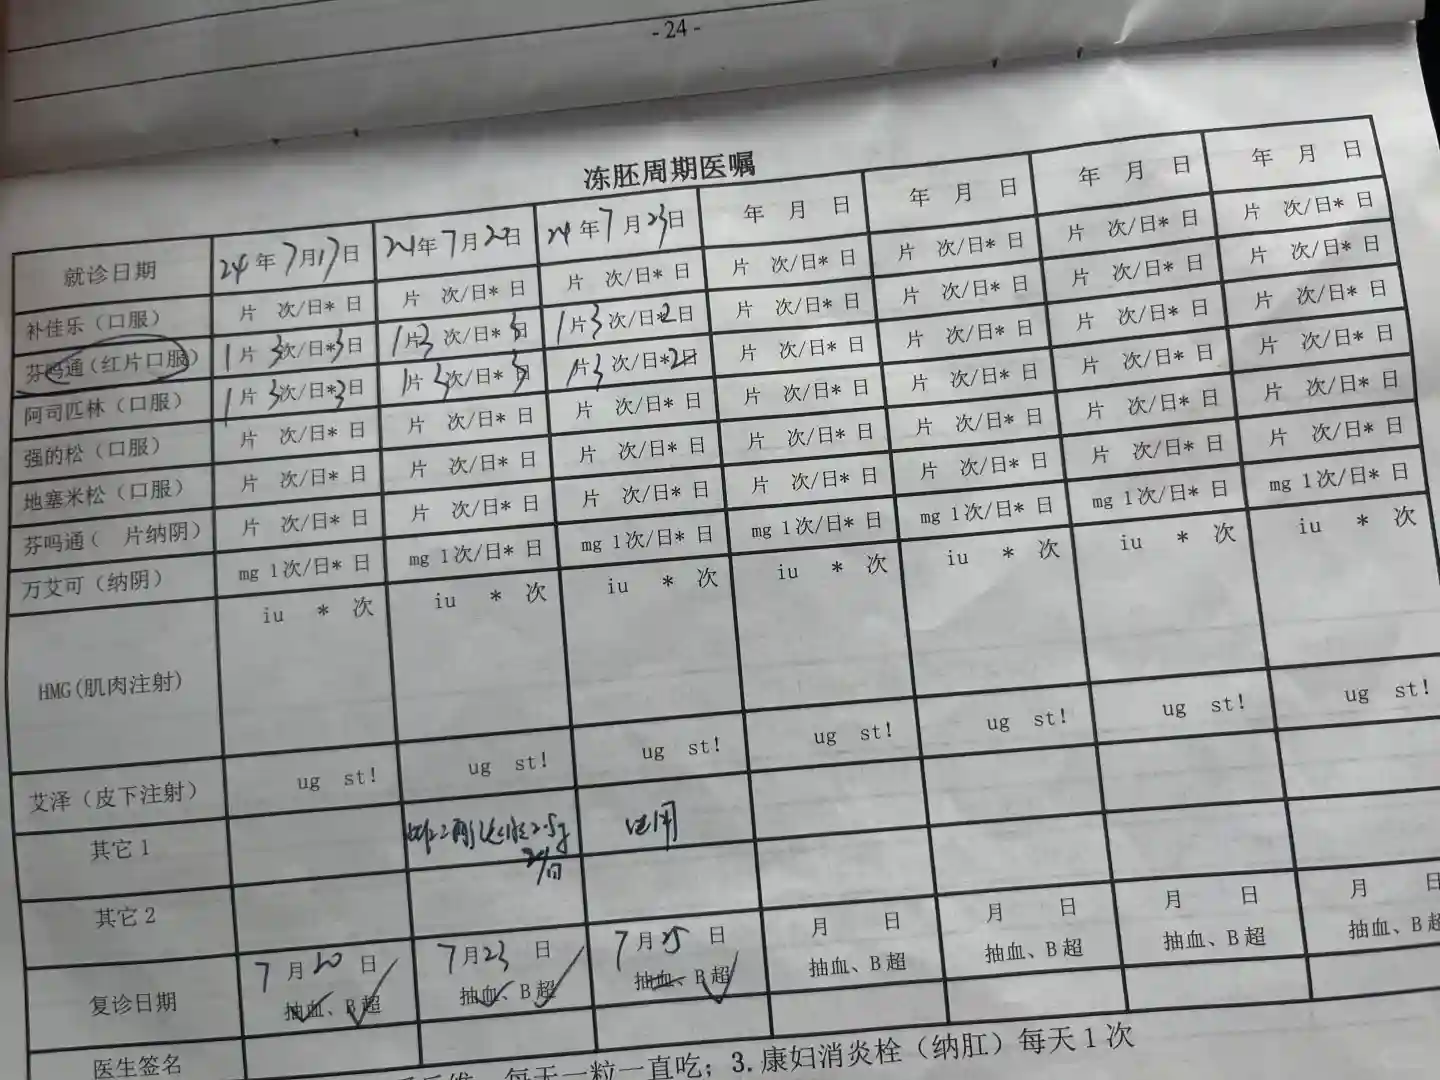 - 24 -
冻胚周期医嘱
就诊日期 24年7月17日 24年7月20日 24年7月23日 年 月 日 年 月 日 年 月 日 年 月 日
补佳乐（口服） 片 次/日* 日 片 次/日* 日 片 次/日* 日 片 次/日* 日 片 次/日* 日 片 次/日* 日 片 次/日* 日
芬吗通（红片口服） 1片3次/日*3日 1片3次/日*3日 1片3次/日*2日 片 次/日* 日 片 次/日* 日 片 次/日* 日 片 次/日* 日
阿司匹林（口服） 1片3次/日*3日 1片3次/日*3日 1片3次/日*2日 片 次/日* 日 片 次/日* 日 片 次/日* 日 片 次/日* 日
强的松（口服） 片 次/日* 日 片 次/日* 日 片 次/日* 日 片 次/日* 日 片 次/日* 日 片 次/日* 日 片 次/日* 日
地塞米松（口服） 片 次/日* 日 片 次/日* 日 片 次/日* 日 片 次/日* 日 片 次/日* 日 片 次/日* 日 片 次/日* 日
芬吗通（ 片纳阴） 片 次/日* 日 片 次/日* 日 片 次/日* 日 片 次/日* 日 片 次/日* 日 片 次/日* 日 片 次/日* 日
万艾可（纳阴） mg 1次/日* 日 mg 1次/日* 日 mg 1次/日* 日 mg 1次/日* 日 mg 1次/日* 日 mg 1次/日* 日 mg 1次/日* 日
HMG(肌肉注射) iu * 次 iu * 次 iu * 次 iu * 次 iu * 次 iu * 次 iu * 次
艾泽（皮下注射） ug st! ug st! ug st! ug st! ug st! ug st! ug st!
其它1 2.5g 已用
日
其它2
复诊日期 7月20日 7月23日 7月25日 月 日 月 日 月 日 月 日
抽血、B超 抽血、B超 抽血、B超 抽血、B超 抽血、B超 抽血、B超 抽血、B超
医生签名
每天一粒一直吃；3.康妇消炎栓（纳肛）每天1次